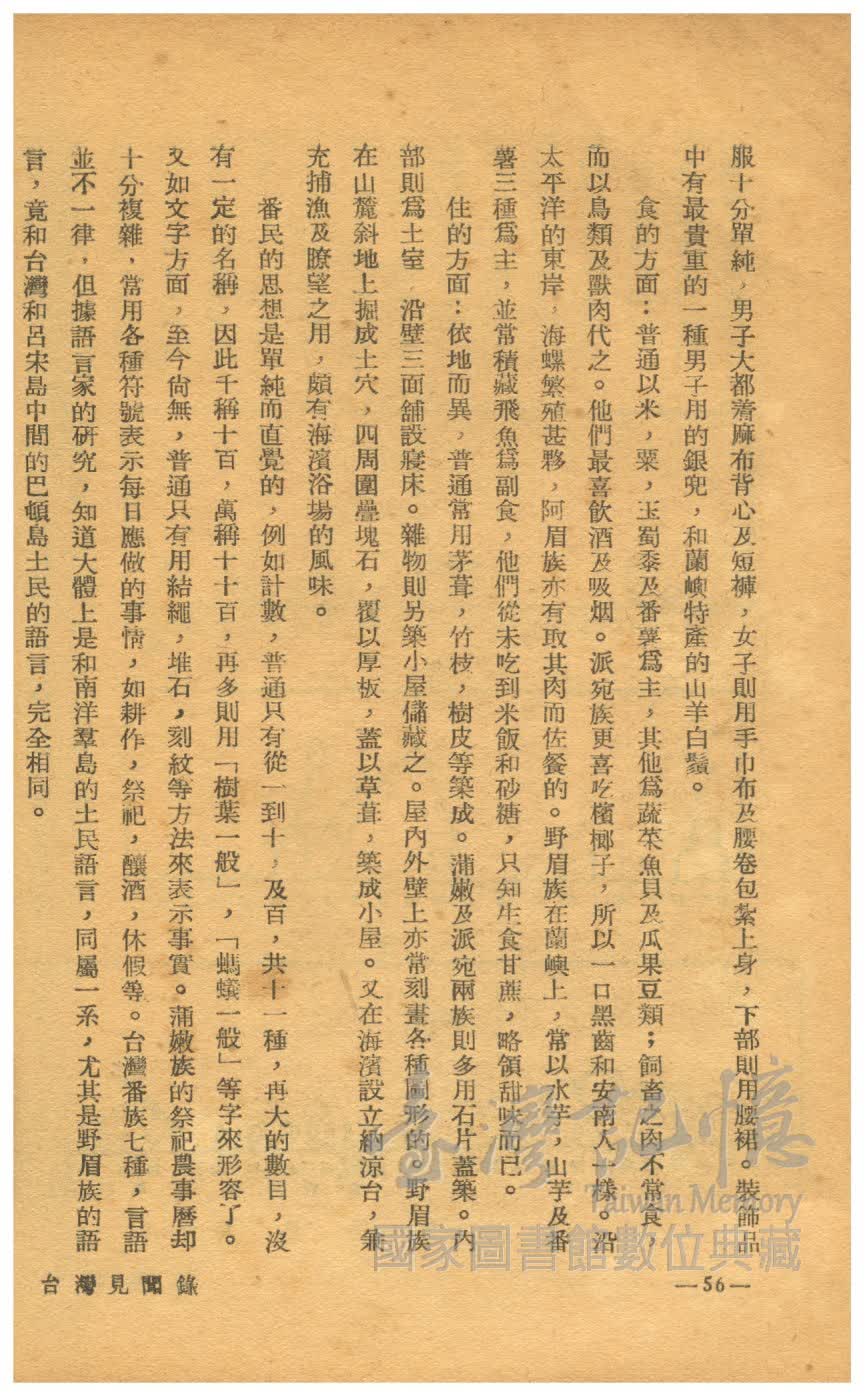 服十分單純，男子大都著麻布背心及短褲，女子則用手巾布及腰卷包紮上身，下部則用腰裙。裝飾品
中有最貴重的一種男子用的銀兜，和蘭嶼特產的山羊白鬚。
食的方面：普通以米，粟，玉蜀黍及番薯爲主，其他爲蔬菜魚貝及瓜果豆類；飼畜之肉不常食，
而以鳥類及獸肉代之。他們最喜飲酒及吸烟。派宛族更喜吃檳榔子，所以一口黑齒和安南人一樣。沿
太平洋的東岸，海螺繁殖甚夥，阿眉族亦有取其肉而佐餐的。野眉族在蘭嶼上，常以水芋，山芋及番
薯三種爲主，並常積藏飛魚爲副食，他們從未吃到米飯和砂糖，只知生食甘蔗，略領甜味而已。
住的方面：依地而異，普通常用茅葺，竹枝，樹皮等築成。蒲嫩及派宛兩族則多用石片蓋築。內
部則爲土室，沿壁三面舖設寢床。雜物則另築小屋儲藏之。屋內外壁上亦常刻畫各種圖形的。野眉族
在山麓斜地上掘成土穴，四周圍疊塊石，覆以厚板，蓋以草葺，築成小屋。又在海濱設立納涼台，兼
充捕漁及瞭望之用，頗有海濱浴場的風味。
番民的思想是單純而直覺的，例如計數，普通只有從一到十，及百，共十一種，再大的數目，沒
有一定的名稱，因此千稱十百，萬稱十十百，再多則用「樹葉一般」，「螞蟻一般」等字來形容了。
又如文字方面，至今尙無，普通只有用結繩，堆石，刻紋等方法來表示事實。蒲嫩族的祭祀農事曆却
十分複雜，常用各種符號表示每日應做的事情，如耕作，祭祀，釀酒，休假等。台灣番族七種，言語
並不一律，但據語言家的研究，知道大體上是和南洋羣島的土民語言，同屬一系，尤其是野眉族的語
言，竟和台灣和呂宋島中間的巴頓島土民的語言，完全相同。
台灣見聞錄
—56—
臺灣記憶
Taiwan Memory
國家圖書館數位典藏